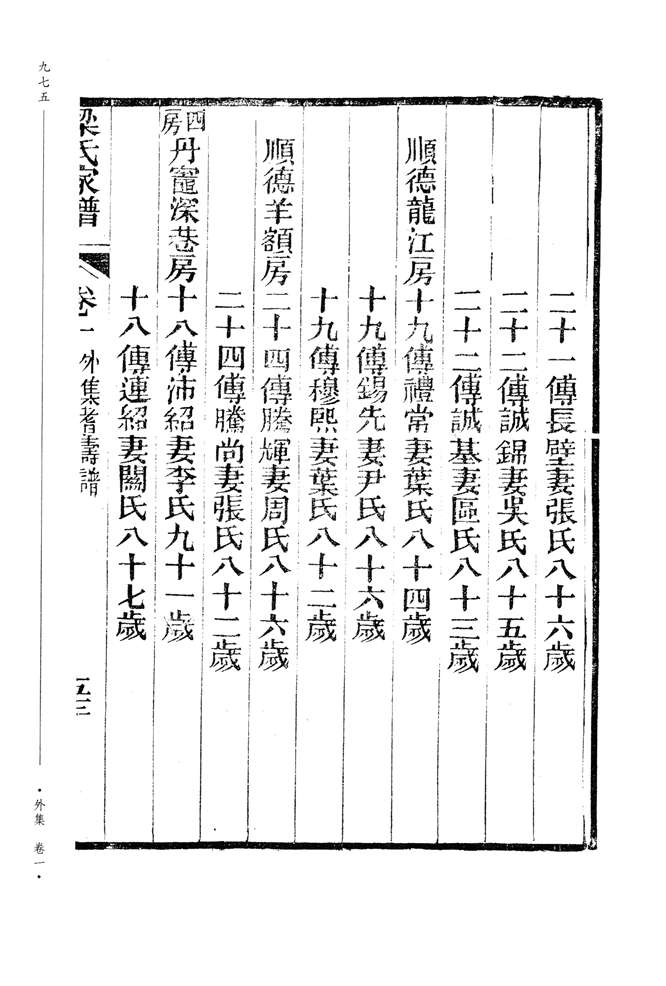 二十一傳長壁妻張氏八十六歲
二十二傳誠錦妻吳氏八十五歲
二十二傳誠基妻區氏八十三歲
順德龍江房十九傳禮常妻葉氏八十四歲
十九傳錫先妻尹氏八十六歲
十九傳穆熙妻葉氏八十二歲
順德羊額房二十四傳騰輝妻周氏八十六歲
二十四傳騰尚妻張氏八十二歲
四房丹竈深巷房十八傳沛紹妻李氏九十一歲
十八傳連紹妻關氏八十七歲
梁氏家譜 卷一 外集耆壽譜 五三
九七五
·外集 卷一·